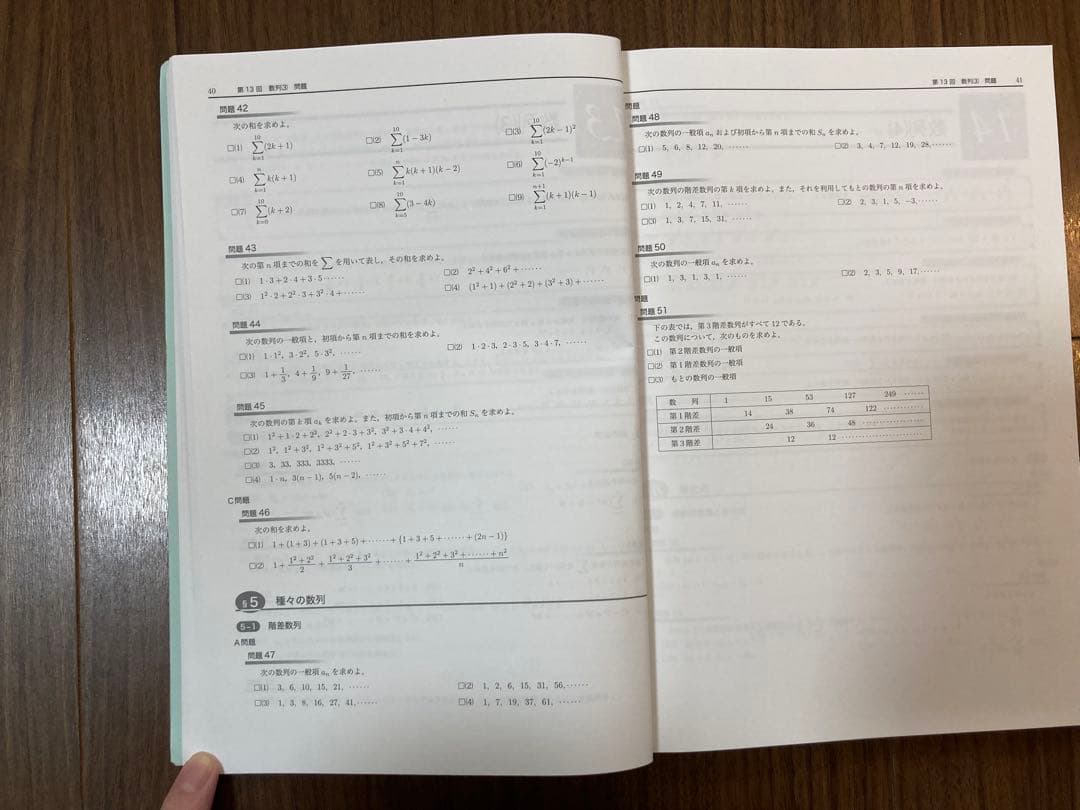 40 第13回 数列③ 問題
問題 42
次の和を求めよ。
□(1) \sum_{k=1}^{10}(2k+1) □(2) \sum_{k=1}^{10}(1-3k) □(3) \sum_{k=1}^{10}(2k-1)^2
□(4) \sum_{k=1}^{n}k(k+1) □(5) \sum_{k=1}^{n}k(k+1)(k-2) □(6) \sum_{k=1}^{10}(-2)^{k-1}
□(7) \sum_{k=0}^{10}(k+2) □(8) \sum_{k=5}^{20}(3-4k) □(9) \sum_{k=1}^{n+1}(k+1)(k-1)
問題 43
次の第 n 項までの和を∑を用いて表し,その和を求めよ。
□(1) 1·3+2·4+3·5…… □(2) 2²+4²+6²+……
□(3) 1²·2+2²·3+3²·4+…… □(4) (1²+1)+(2²+2)+(3²+3)+……
問題 44
次の数列の一般項と,初項から第 n 項までの和を求めよ。
□(1) 1·1², 3·2², 5·3², …… □(2) 1·2·3, 2·3·5, 3·4·7, ……
□(3) 1+\frac{1}{3}, 4+\frac{1}{9}, 9+\frac{1}{27}, ……
問題 45
次の数列の第 k 項 a_k を求めよ。また,初項から第 n 項までの和 S_n を求めよ。
□(1) 1²+1·2+2², 2²+2·3+3², 3²+3·4+4², ……
□(2) 1², 1²+3², 1²+3²+5², 1²+3²+5²+7², ……
□(3) 3, 33, 333, 3333, ……
□(4) 1·n, 3(n-1), 5(n-2), ……
C問題
問題 46
次の和を求めよ。
□(1) 1+(1+3)+(1+3+5)+……+{1+3+5+……+(2n-1)}
□(2) 1+\frac{1²+2²}{2}+\frac{1²+2²+3²}{3}+……+\frac{1²+2²+3²+……+n²}{n}
§5 種々の数列
5-1 階差数列
A問題
問題 47
次の数列の一般項 a_n を求めよ。
□(1) 3, 6, 10, 15, 21, …… □(2) 1, 2, 6, 15, 31, 56, ……
□(3) 1, 3, 8, 16, 27, 41, …… □(4) 1, 7, 19, 37, 61, ……
第13回 数列③ 問題 41
問題
問題 48
次の数列の一般項 a_n および初項から第 n 項までの和 S_n を求めよ。
□(1) 5, 6, 8, 12, 20, …… □(2) 3, 4, 7, 12, 19, 28, ……
問題 49
次の数列の階差数列の第 k 項を求めよ。また,それを利用してもとの数列の第 n 項を求めよ。
□(1) 1, 2, 4, 7, 11, …… □(2) 2, 3, 1, 5, -3, ……
□(3) 1, 3, 7, 15, 31, ……
問題 50
次の数列の一般項 a_n を求めよ。
□(1) 1, 3, 1, 3, 1, …… □(2) 2, 3, 5, 9, 17, ……
問題
問題 51
下の表では,第3階差数列がすべて12である。
この数列について,次のものを求めよ。
□(1) 第2階差数列の一般項
□(2) 第1階差数列の一般項
□(3) もとの数列の一般項
数 列 1 15 53 127 249 ……
第1階差 14 38 74 122 …………
第2階差 24 36 48 ………………
第3階差 12 12 ……………………